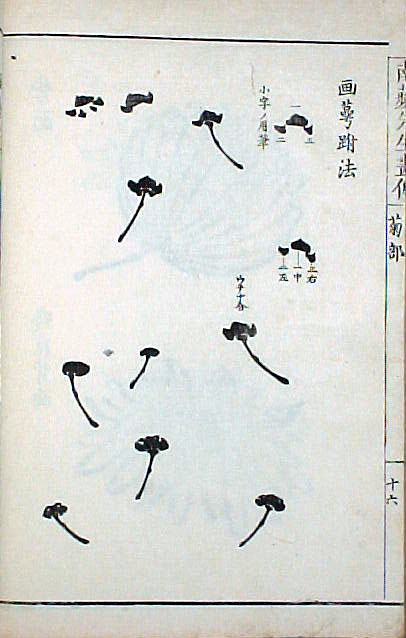 菊部
十六
画萼跗法
一
二
三
小字ノ用筆
三右
一中
二左